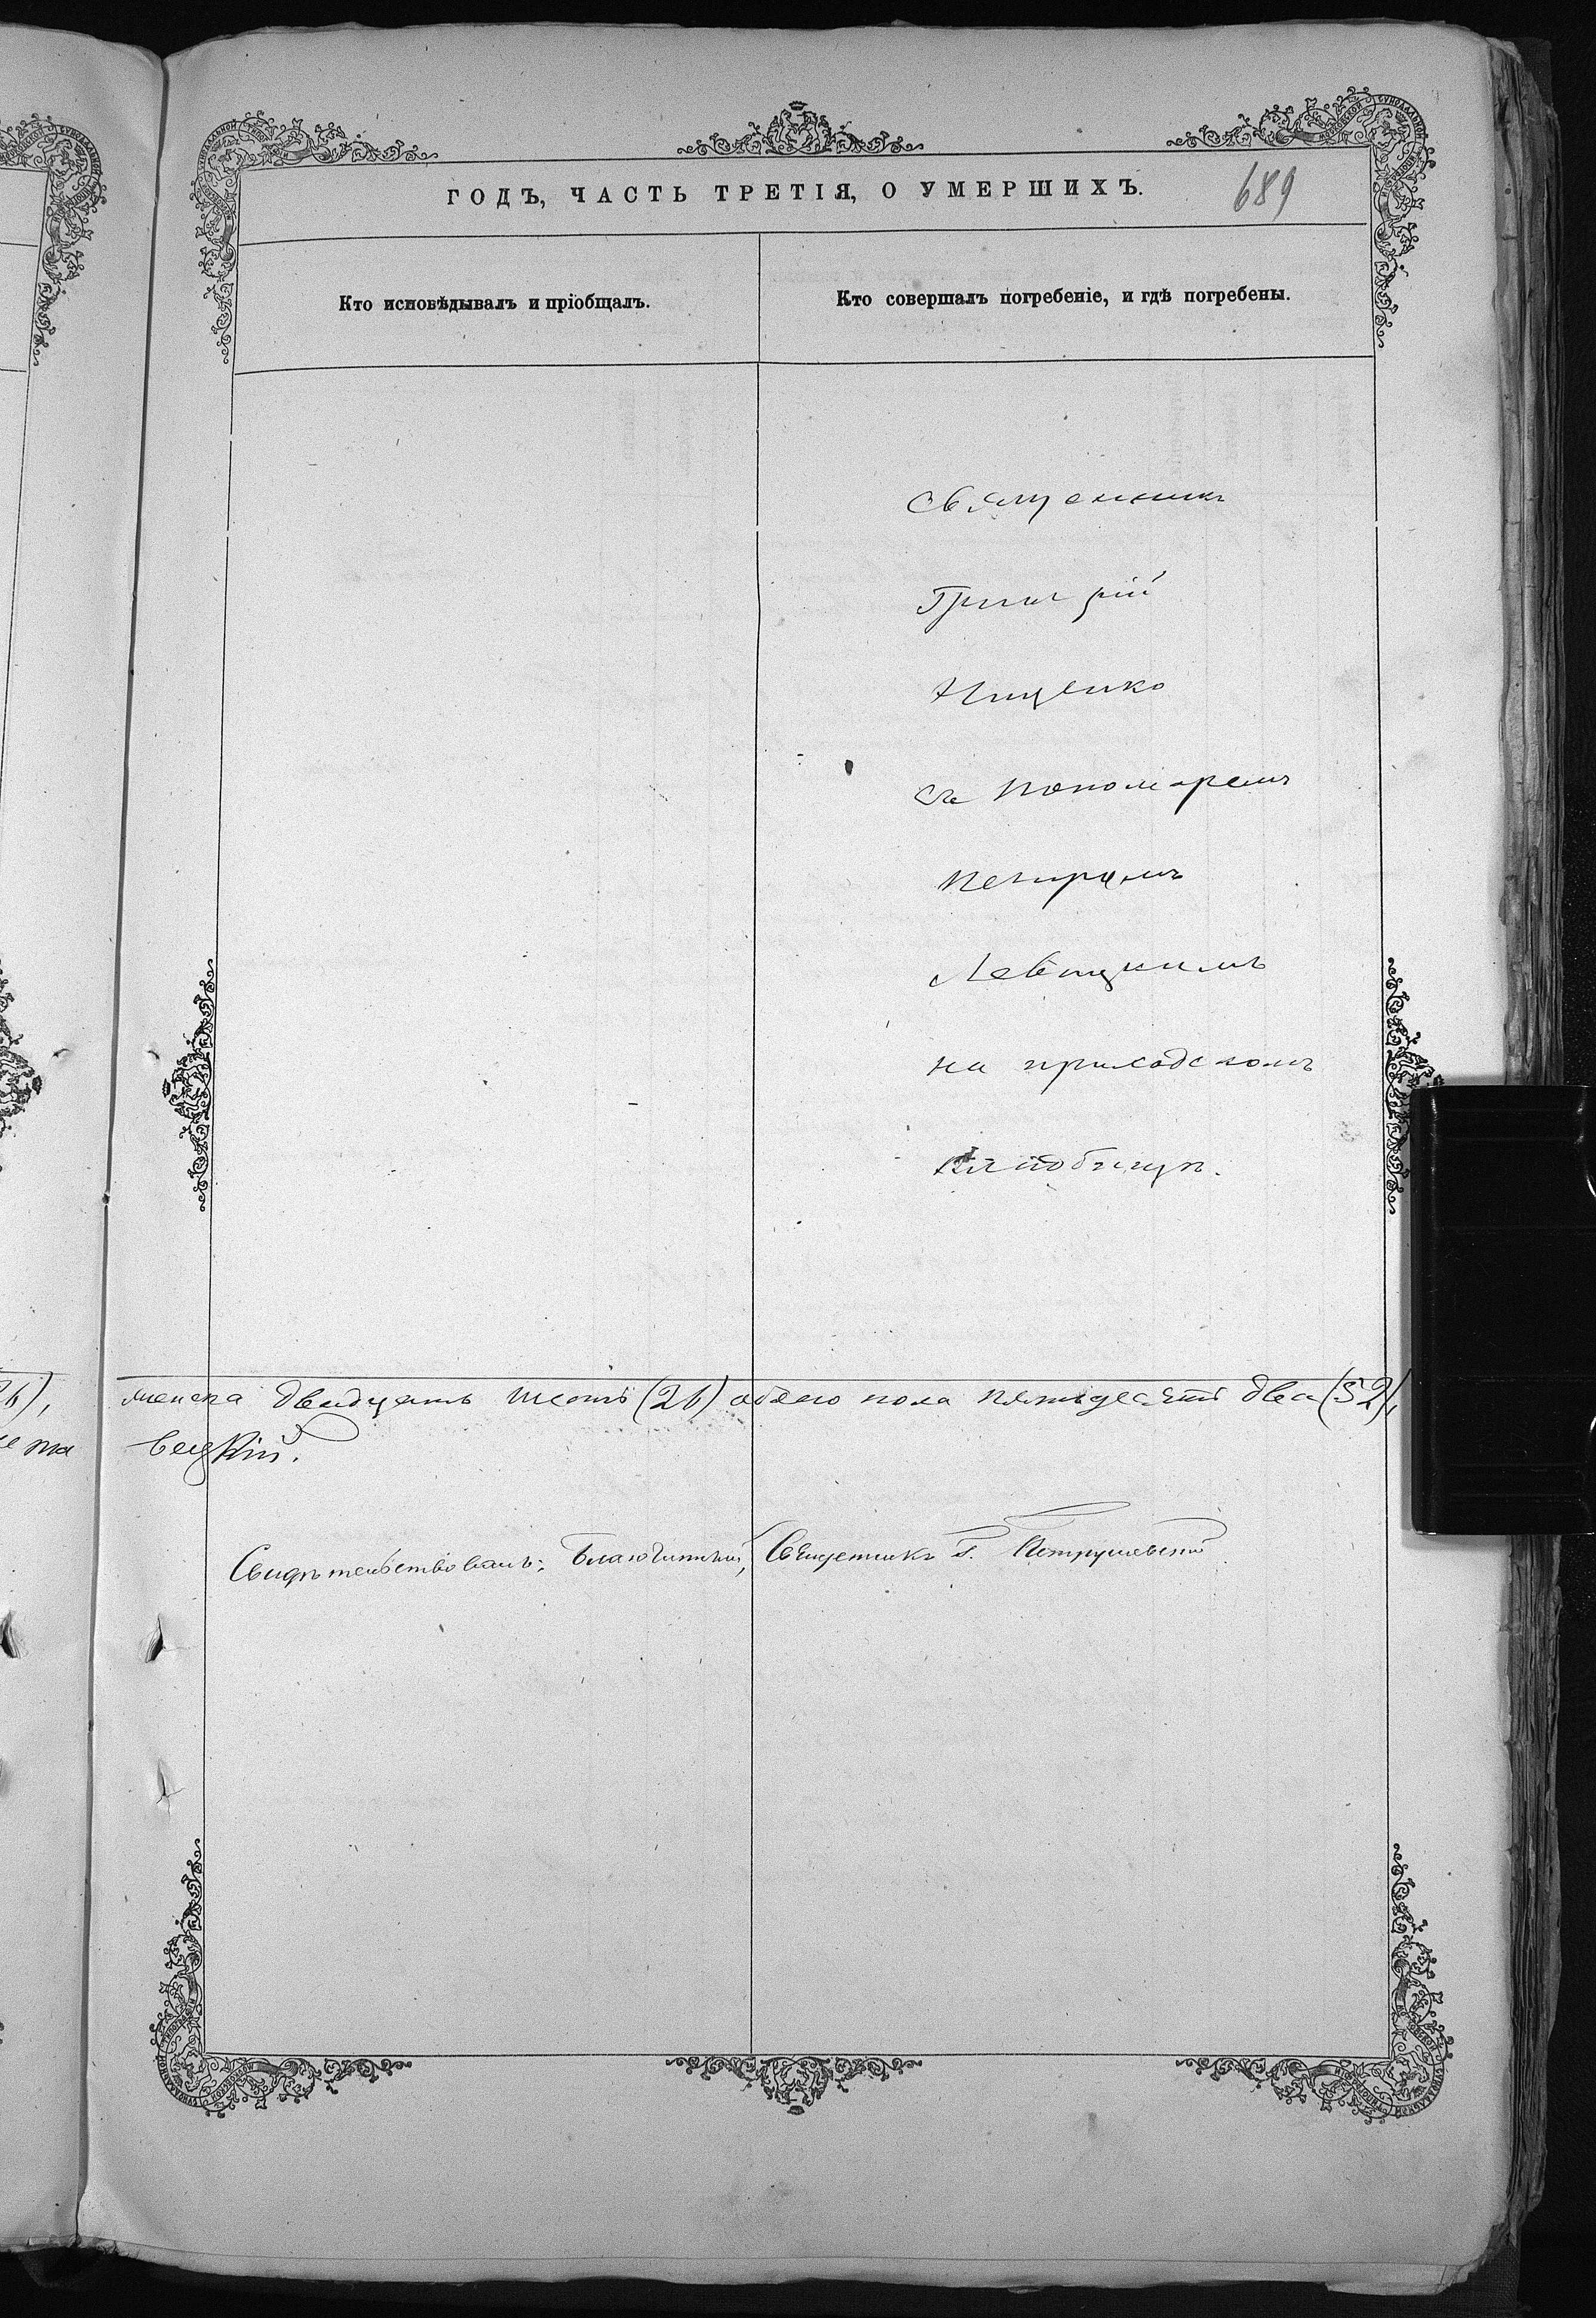 ГОДЪ, ЧАСТЬ ТРЕТІЯ, О УМЕРШИХЪ.
689
Кто исповѣдывалъ и пріобщалъ.
Кто совершалъ погребеніе, и гдѣ погребены.
Священникъ
Григорій
Нищенко
съ пономаремъ
Петромъ
Левицкимъ
на приходскомъ
кладбищѣ.
женска двадцать шесть (26) обѣего пола пятьдесятъ два (52),
вецкій.
Свидѣтельствовалъ: Благочинный, Священникъ Петрушевскій